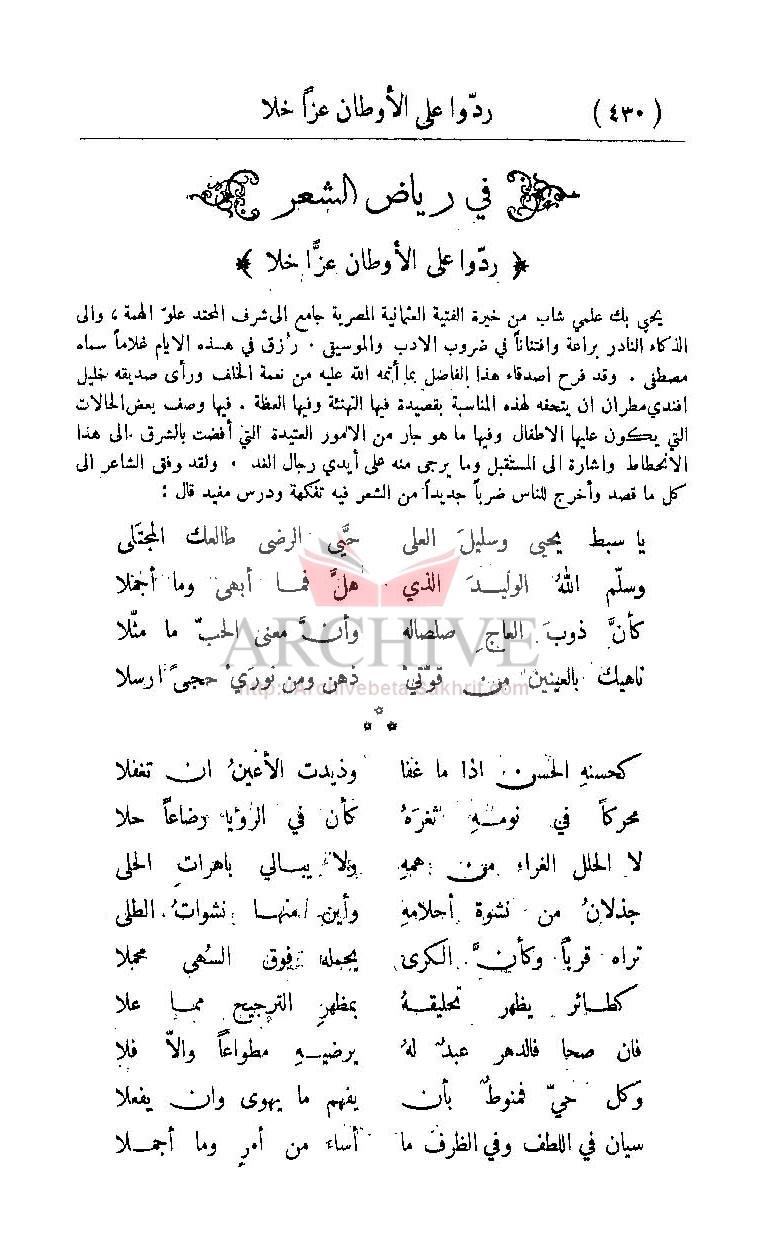 (٤٣٠) ردّوا على الأوطان عزاً خلا
في رياض الشعر
﴿ ردّوا على الأوطان عزًّا خلا ﴾
يحيى بك علمي شاب من خيرة الفتية العثمانية المصرية جامع الى شرف المحتد علوّ الهمة ، والى
الذكاء النادر براعة وافتناناً في ضروب الادب والموسيقى . رُزق في هذه الايام غلاماً سماه
مصطفى . وقد فرح اصدقاء هذا الفاضل بما أتمه الله عليه من نعمة الخلف ورأى صديقه خليل
افندي مطران ان يتحفه لهذه المناسبة بقصيدة فيها التهنئة وفيها العظة . فيها وصف بعض الحالات
التي يكون عليها الاطفال وفيها ما هو جار من الامور العتيدة التي أفضت بالشرق الى هذا
الانحطاط واشارة الى المستقبل وما يرجى منه على أيدي رجال الغد . ولقد وفق الشاعر الى
كل ما قصد وأخرج للناس ضرباً جديداً من الشعر فيه تفكهة ودرس مفيد قال :
يا سبط يحيى وسليلَ العلى حيَّي الرضى طالعك المجتلى
وسلّم اللهُ الوليدَ الذي هلَّ فما أبهى وما أجملا
كأنَّ ذوبَ العاجِ صلصاله وأنَّ معنى الحبّ ما مثّلا
ناهيك بالعينين من قوّتيْ ذهن ومن نوريْ حجىً ارسلا
ARCHIVE
http://Archivebeta.Sakhrit.com
* * *
كحسنهِ الحسن اذا ما غفا وذيدت الأعينُ ان تغفلا
محركاً في نومهِ ثغرَهُ كأن في الرؤيا رضاعاً حلا
لا الحلل الغراء من همهِ ولا يبالي باهرات الحلى
جذلانُ من نشوة أحلامهِ وأين منها نشواتُ الطلى
تراه قرباً وكأنَّ الكرى يجمله فوق السُهى محملا
كطائر يظهر تحليقهُ بمظهرِ الترجيح مما علا
فان صحا فالدهر عبدٌ لهُ يرضيهِ مطواعاً والاّ فلا
وكل حيّ فمنوطٌ بأن يفهم ما يهوى وان يفعلا
سيان في اللطف وفي الظرف ما أساء من أمرٍ وما أجملا